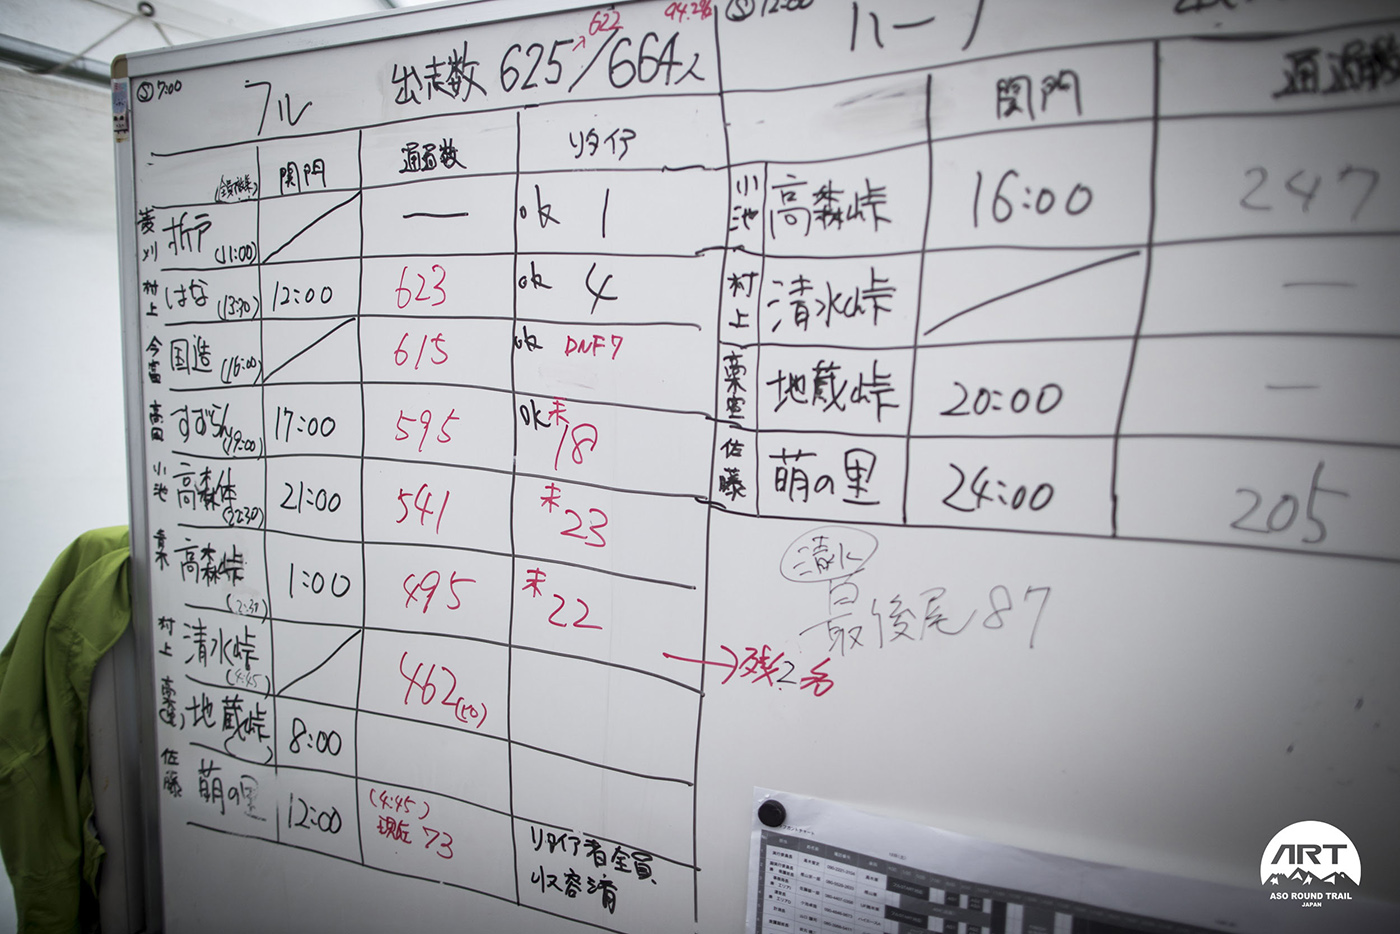 Ⓢ 7:00
フル 出走数 625→622/664人 94.2%
関門 通過数 リタイア
菱刈 折戸 (11:00) — ok 1
村上 はな (13:30) 12:00 623 ok 4
今富 国造 (16:00) 615 ok DNF7
高田 すずらん (19:00) 17:00 595 ok 未18
小池 高森体 (22:30) 21:00 541 未23
青木 高森峠 (2:30) 1:00 495 未22
村上 清水峠 (4:45) 462
地蔵峠 8:00
佐藤 萌の里 12:00 (4:45) 現在 73
リタイア者全員
収容済
→残2名
Ⓢ 12:00
ハーフ
関門 通過数
小池 高森峠 16:00 247
村上 清水峠 —
地蔵峠 20:00 —
佐藤 萌の里 24:00 205
清水
最後尾 87
ART
ASO ROUND TRAIL
JAPAN